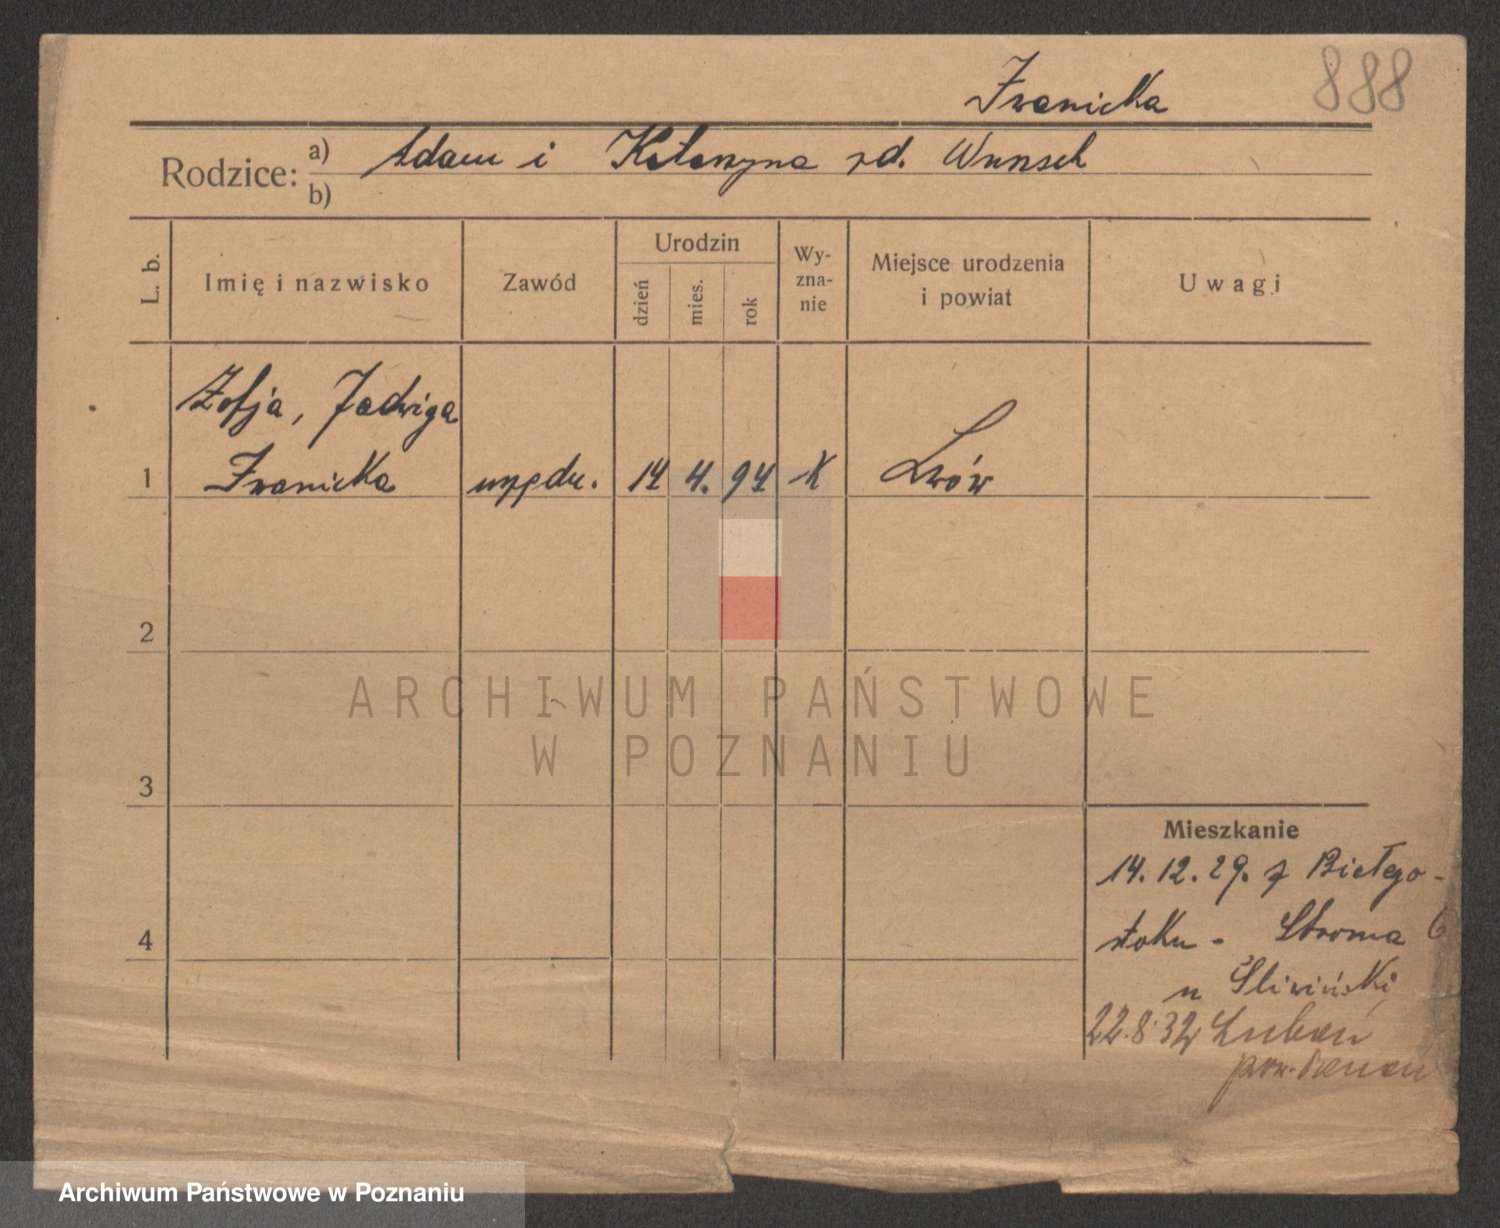 Iwanicka 888
Rodzice: a) Adam i Katarzyna rd. Wunsch
b)
L. b. Imię i nazwisko Zawód Urodzin dzień mies. rok Wy-zna-nie Miejsce urodzenia i powiat Uwagi
Zofja, Jadwiga
1 Iwanicka urzędn. 14 4. 94 K Lwów
2
ARCHIWUM PAŃSTWOWE
W POZNANIU
3
Mieszkanie
14.12.29. z Białego-
4 stoku - Stroma 6
u Śliwiński
22.8.32 Luboń
pow. Poznań
Archiwum Państwowe w Poznaniu